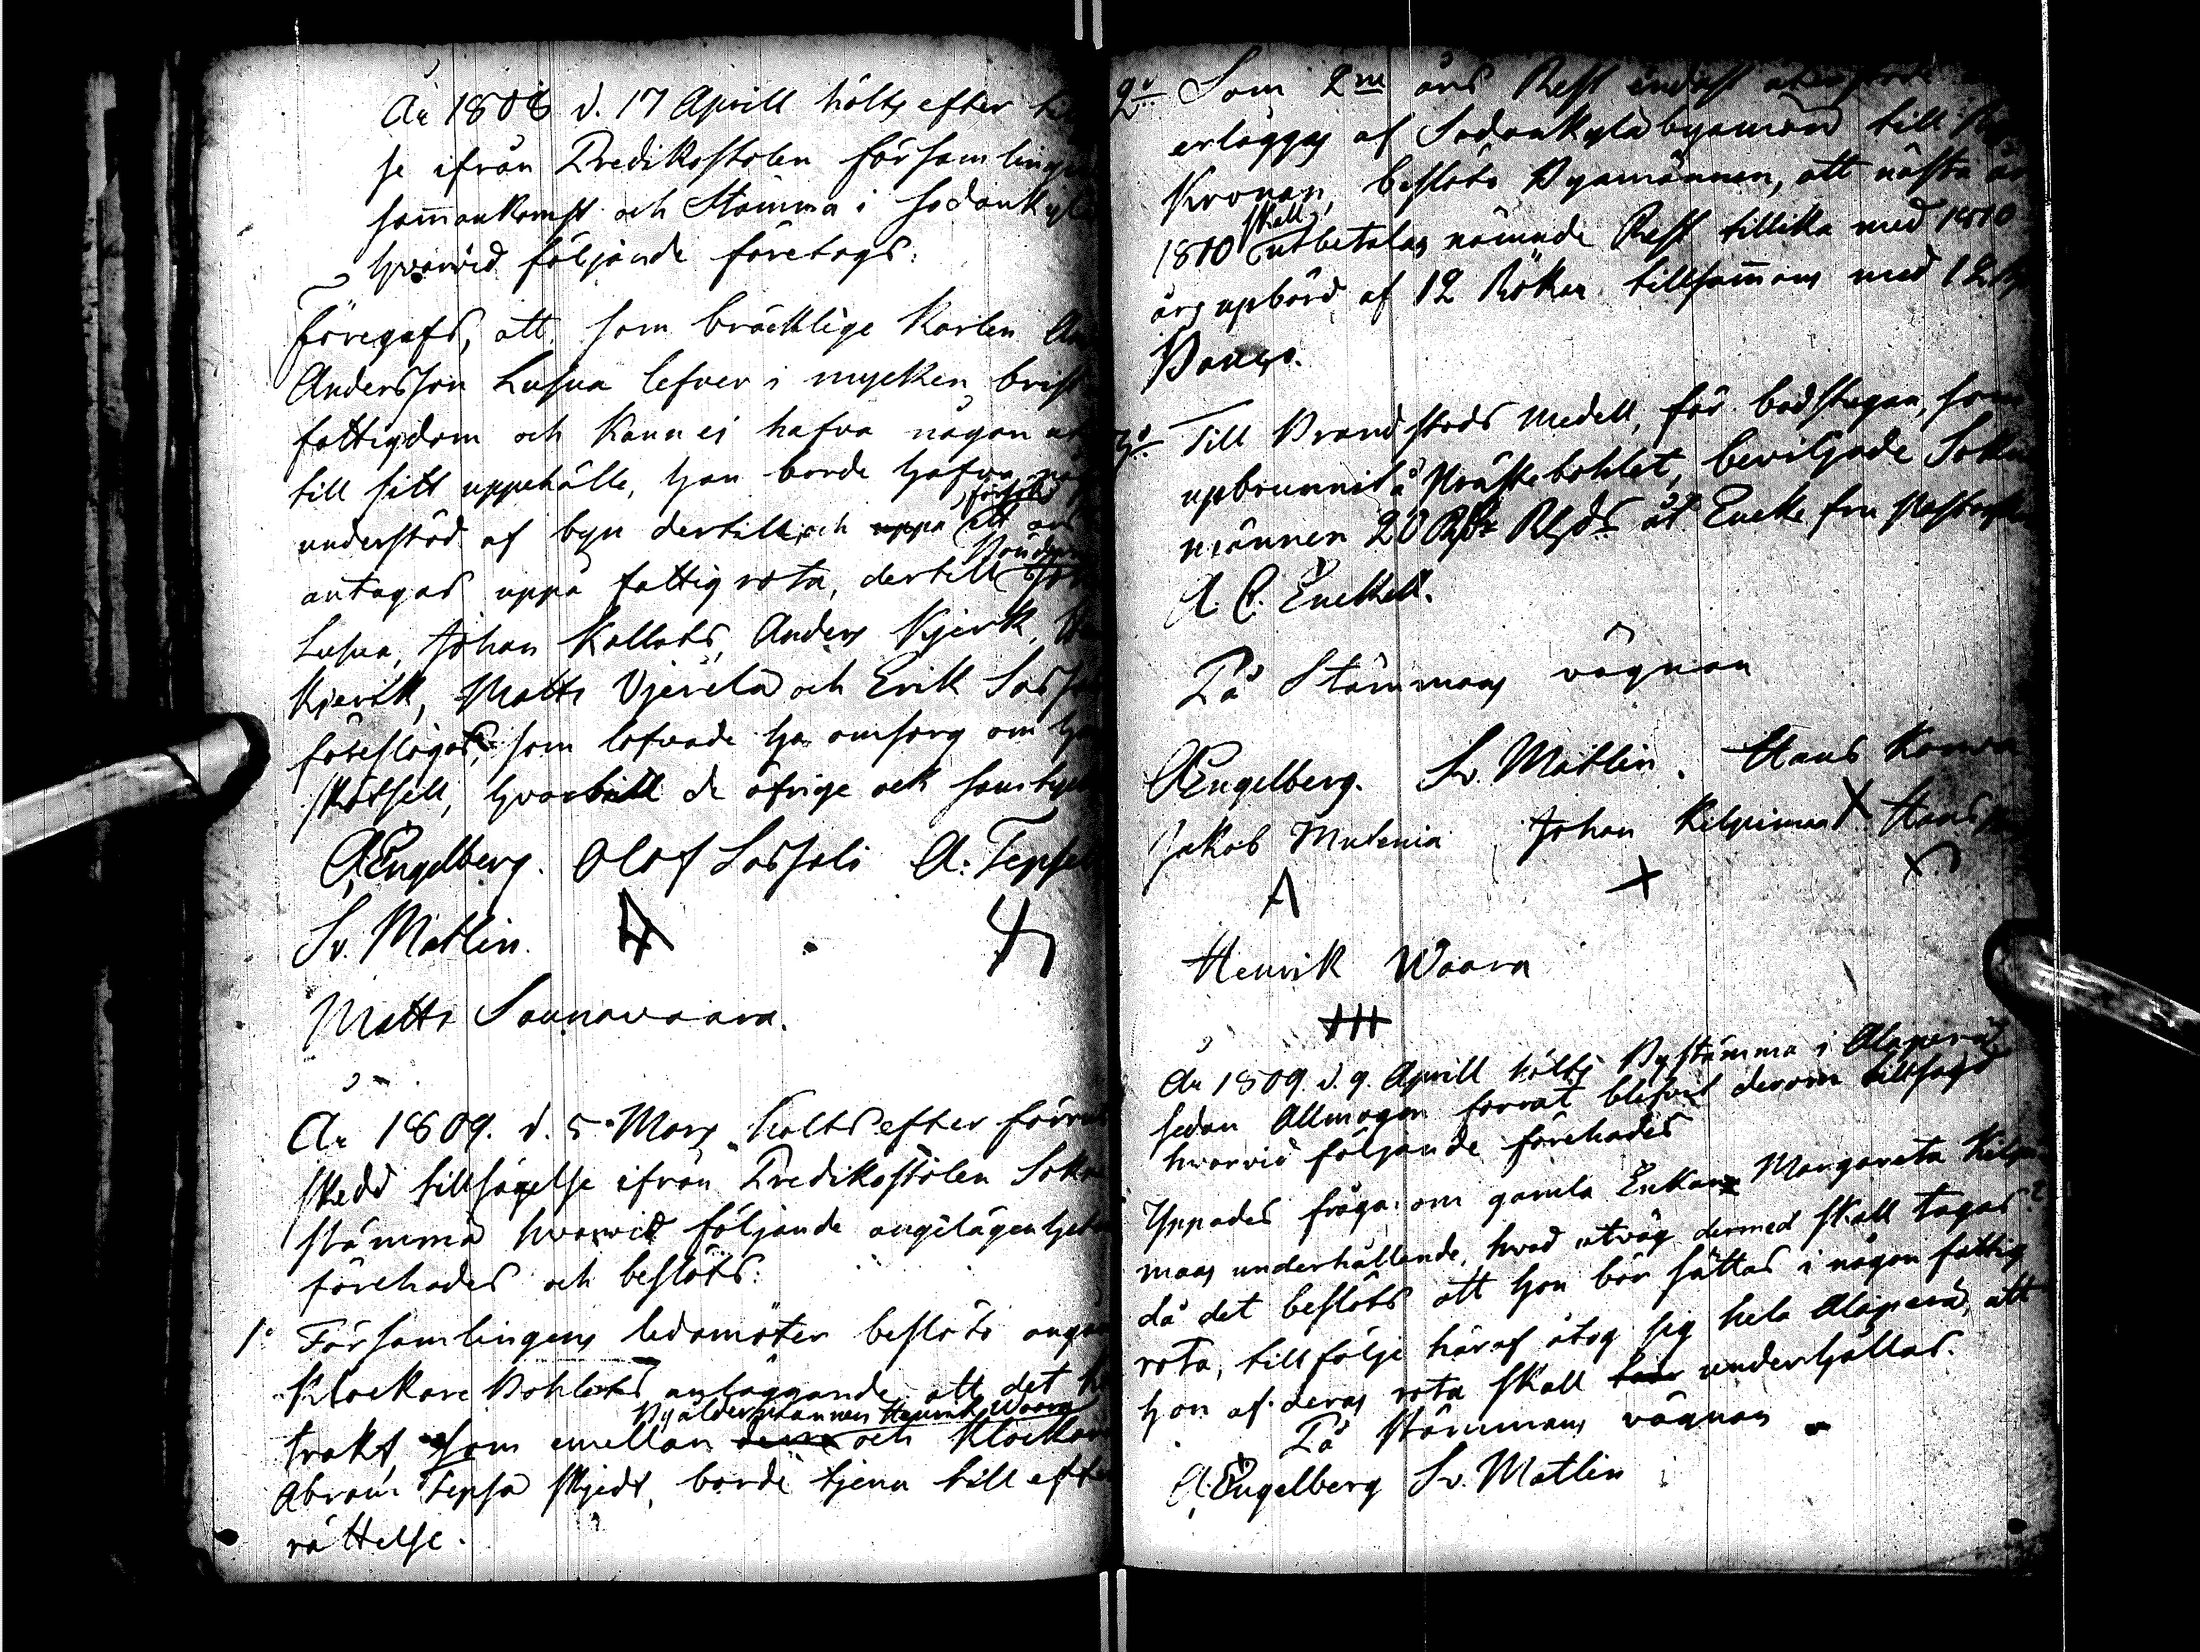 År 1808 d. 17 Aprill hölts efter
se ifrån Predikostolen församlingen
sam̄ankomst och Stämma i Sodankylä
hvarvid följande företogs.
Föregafs, att som bräcklige Karlen
Andersson Lusua lefver i mycken brist
fattigdom och kann ej hafva någon
till sitt uppehälle, han borde hafva
understöd af byn dertill, och uppå ett
antagas uppå fattig rota, dertill
Lusua, Johan Kallats, Anders Kjerk,
Kjerk, Matts Vjerelä och Erik
föreslogos, som lofvade ha omsorg om
skötsell, hvartill de öfrige ock samtyckte
A. Engelberg. Olof Sassali A. Tepsell
Sv. Matlin.
Matts Saunavaara.
År 1809. d. 5 Mars hölts efter förut
skedd tillsägelse ifrån Predikostolen Sokne
stämma hvarvid följande angelägenheter
förehades och beslöts:
1o Församlingens ledamöter beslöto
Klockare Bohlets anläggande, att det
Byåldermannen Henrik Waara
trakt, som emellan och Klockaren
Abram Tepsa skjedt, borde tjena till efter
rättelse.
2o Som 2ne års Rest endast
erläggas af Sodankylä byamän till
Kronan, beslöto Byamännen, att nästa år
1810 skall utbetalas nämnde Rest tillika med 1810
års upbörd af 12 Röker tillsam̄ans med 12
3o Till Brandstods Medell, för badstugan, som
upbrunnit å Prästebohlet, beviljade Sokne
männen 20 Rds åt Encke fru
A. C. Enckell.
På Stämmans vägnar
A Engelberg. Sv. Matlin. Hans
Jakob Mutenia Johan Kilpimaa X Hans
X X
Henrik Waara
År 1809. d. 9. Aprill hölts Bystämma i Alaperä
sedan Allmogen förrat blifvit derom tillsagd
hvarvid följande förehades
Yppades fråga om gamla Enkans Margareta
maas underhållende, hvad utväg dermed skall tagas?
då det beslöts att hon bör sättas i någon fattig
rota, till följe häraf åtog sig hela Alaperä, att
hon af deras rota skall underhållas.
På Stämmans vägnar
A. Engelberg Sv. Matlin